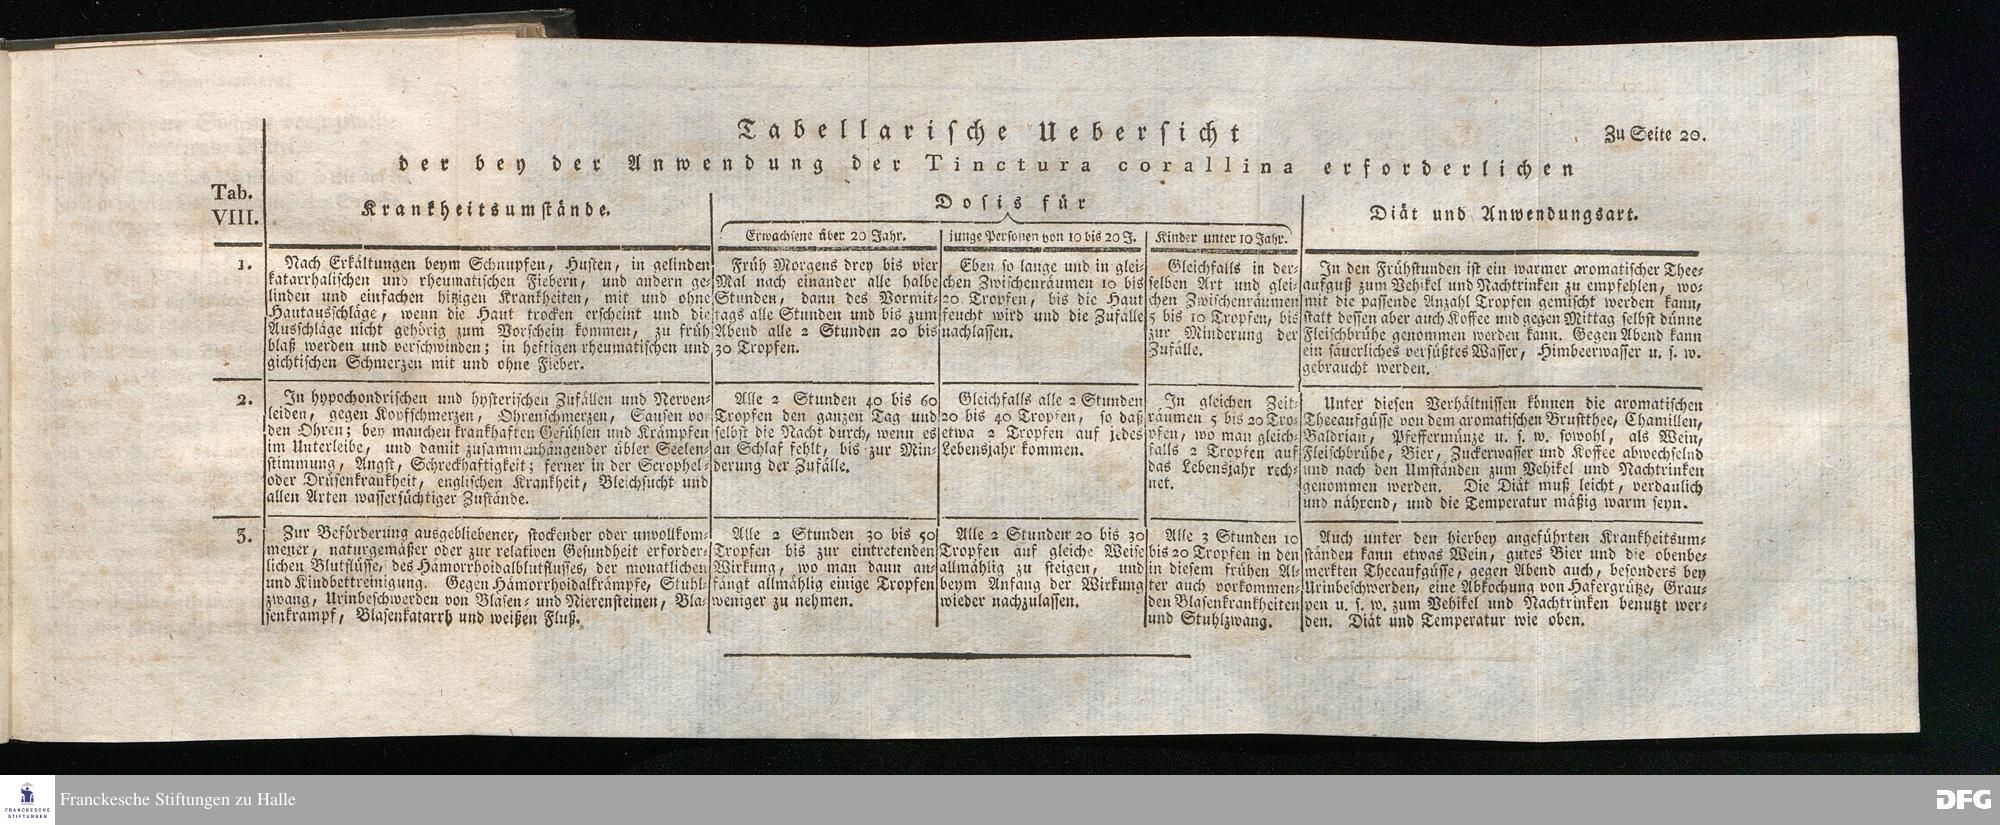 Zu Seite 20.
Tabellarische Uebersicht
der bey der Anwendung der Tinctura corallina erforderlichen
Tab.
VIII.
Krankheitsumstände.
Dosis für
Erwachsene über 20 Jahr.
junge Personen von 10 bis 20 J.
Kinder unter 10 Jahr.
Diät und Anwendungsart.
1.
Nach Erkältungen beym Schnupfen, Husten, in gelinden
katarrhalischen und rheumatischen Fiebern, und andern ge-
linden und einfachen hitzigen Krankheiten, mit und ohne
Hautausschläge, wenn die Haut trocken erscheint und die
Ausschläge nicht gehörig zum Vorschein kommen, zu früh
blaß werden und verschwinden; in heftigen rheumatischen und
gichtischen Schmerzen mit und ohne Fieber.
Früh Morgens drey bis vier
Mal nach einander alle halbe
Stunden, dann des Vormit-
tags alle Stunden und bis zum
Abend alle 2 Stunden 20 bis
30 Tropfen.
Eben so lange und in glei-
chen Zwischenräumen 10 bis
20 Tropfen, bis die Haut
feucht wird und die Zufälle
nachlassen.
Gleichfalls in der-
selben Art und glei-
chen Zwischenräumen
5 bis 10 Tropfen, bis
zur Minderung der
Zufälle.
In den Frühstunden ist ein warmer aromatischer Thee-
aufguß zum Vehikel und Nachtrinken zu empfehlen, wo-
mit die passende Anzahl Tropfen gemischt werden kann,
statt dessen aber auch Koffee und gegen Mittag selbst dünne
Fleischbrühe genommen werden kann. Gegen Abend kann
ein säuerliches versüßtes Wasser, Himbeerwasser u. s. w.
gebraucht werden.
2.
In hypochondrischen und hysterischen Zufällen und Nerven-
leiden, gegen Kopfschmerzen, Ohrenschmerzen, Sausen vor
den Ohren; bey manchen krankhaften Gefühlen und Krämpfen
im Unterleibe, und damit zusammenhängender übler Seelen-
stimmung, Angst, Schreckhaftigkeit; ferner in der Scrophel-
oder Drüsenkrankheit, englischen Krankheit, Bleichsucht und
allen Arten wassersüchtiger Zustände.
Alle 2 Stunden 40 bis 60
Tropfen den ganzen Tag und
selbst die Nacht durch, wenn es
an Schlaf fehlt, bis zur Min-
derung der Zufälle.
Gleichfalls alle 2 Stunden
20 bis 40 Tropfen, so daß
etwa 2 Tropfen auf jedes
Lebensjahr kommen.
In gleichen Zeit-
räumen 5 bis 20 Tro-
pfen, wo man gleich-
falls 2 Tropfen auf
das Lebensjahr rech-
net.
Unter diesen Verhältnissen können die aromatischen
Theeaufgüsse von dem aromatischen Brustthee, Chamillen,
Baldrian, Pfeffermünze u. s. w. sowohl, als Wein,
Fleischbrühe, Bier, Zuckerwasser und Koffee abwechselnd
und nach den Umständen zum Vehikel und Nachtrinken
genommen werden. Die Diät muß leicht, verdaulich
und nährend, und die Temperatur mäßig warm seyn.
3.
Zur Beförderung ausgebliebener, stockender oder unvollkom-
mener, naturgemäßer oder zur relativen Gesundheit erforder-
lichen Blutflüsse, des Hämorrhoidalblutflusses, der monatlichen
und Kindbettreinigung. Gegen Hämorrhoidalkrämpfe, Stuhl-
zwang, Urinbeschwerden von Blasen- und Nierensteinen, Bla-
senkrampf, Blasenkatarrh und weißen Fluß.
Alle 2 Stunden 30 bis 50
Tropfen bis zur eintretenden
Wirkung, wo man dann an-
fängt allmählig einige Tropfen
weniger zu nehmen.
Alle 2 Stunden 20 bis 30
Tropfen auf gleiche Weise
allmählig zu steigen, und
beym Anfang der Wirkung
wieder nachzulassen.
Alle 3 Stunden 10
bis 20 Tropfen in den
in diesem frühen Al-
ter auch vorkommen-
den Blasenkrankheiten
und Stuhlzwang.
Auch unter den hierbey angeführten Krankheitsum-
ständen kann etwas Wein, gutes Bier und die obenbe-
merkten Theeaufgüsse, gegen Abend auch, besonders bey
Urinbeschwerden, eine Abkochung von Hafergrütze, Grau-
pen u. s. w. zum Vehikel und Nachtrinken benutzt wer-
den. Diät und Temperatur wie oben.
FRANCKESCHE
STIFTUNGEN
Franckesche Stiftungen zu Halle
DFG